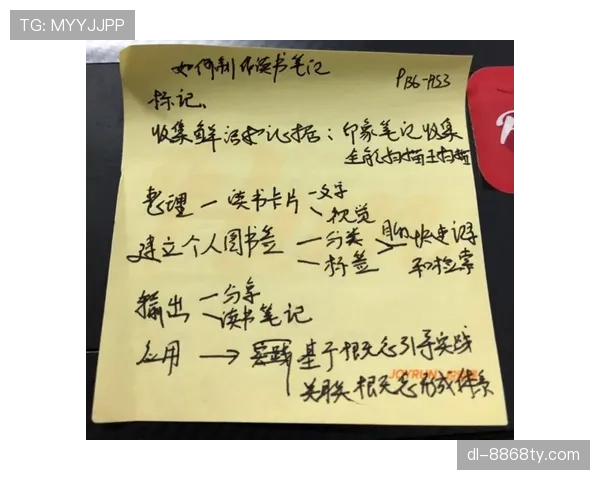 TG: MYYJJPP
如何制作读书笔记 P36-P53
标记、
收集鲜活和证据：印象笔记收集
全能扫描王扫描
整理 — 读书卡片 — 文字
视觉
建立个人图书签 — 分类 目的 快速记录
— 标签 和检索
输出 — 分享
读书笔记
应用 → 实践 基于概念引导实践
JOYRUN
关联关概念形成体系
dl-8868ty.com